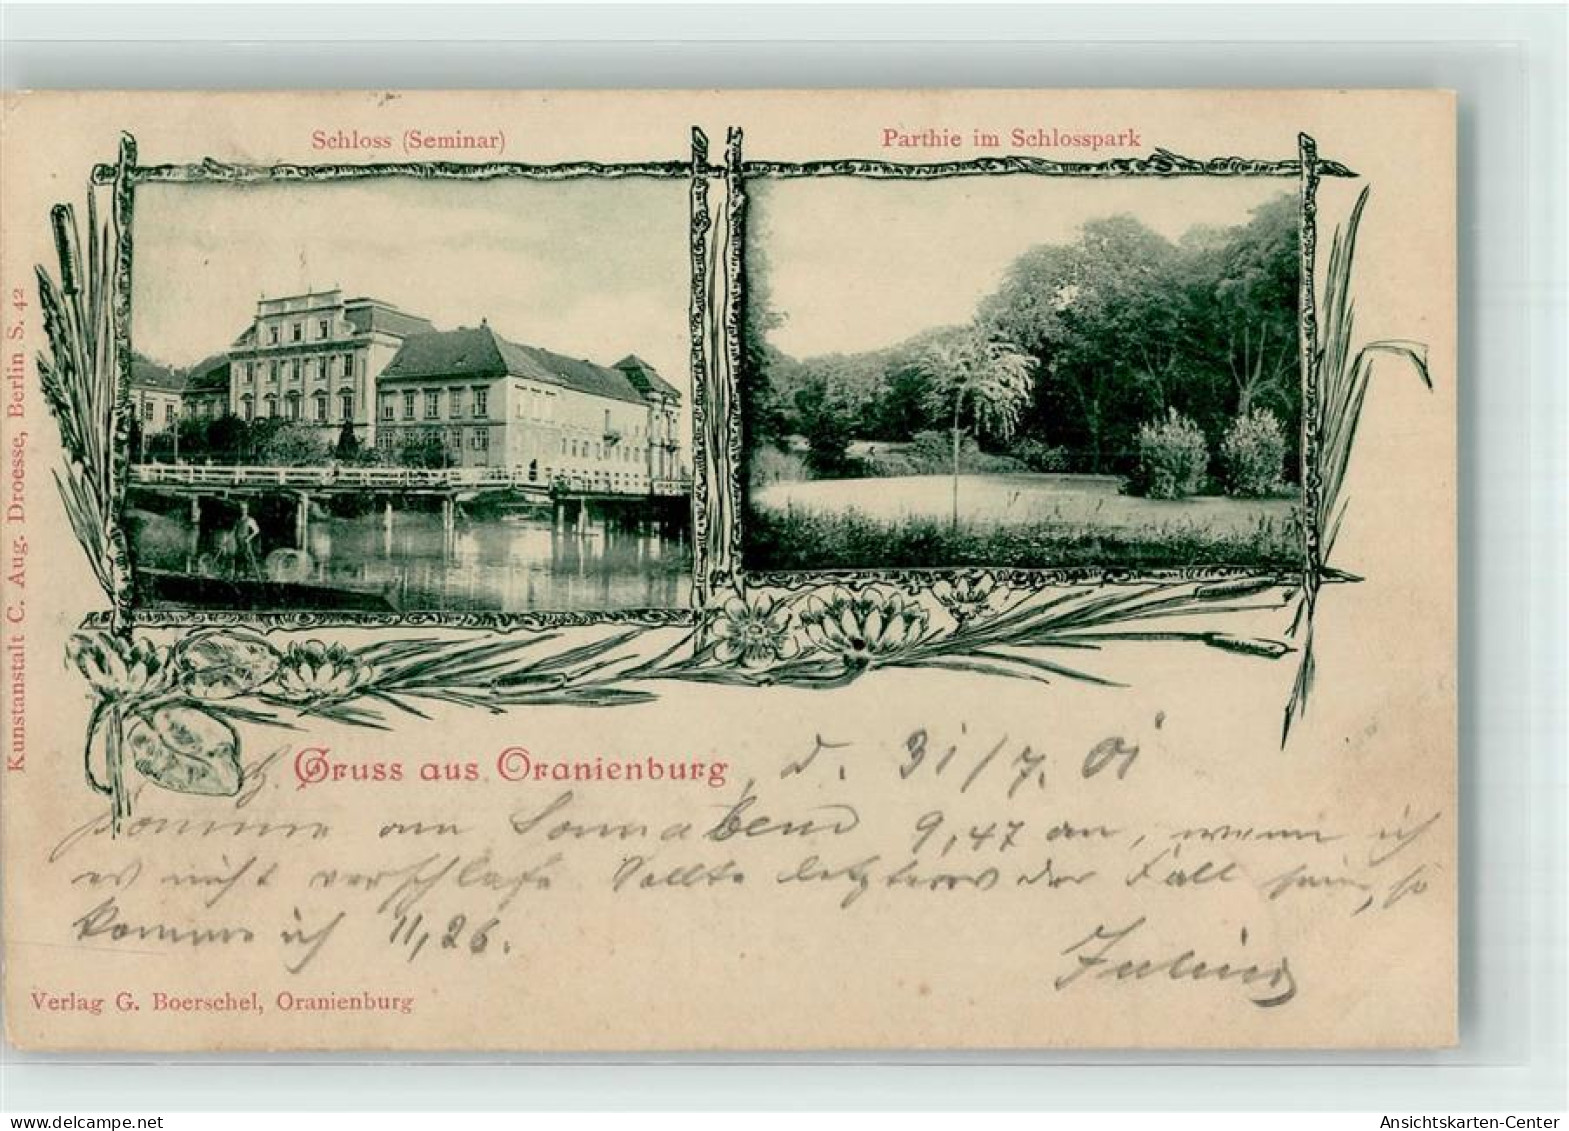 Schloss (Seminar)
Parthie im Schlosspark
Kunstanstalt C. Aug. Droesse, Berlin S. 42
Gruss aus Oranienburg, d. 31/7. 01
komme am Sonnabend 9,47 an, wenn ich
es nicht verschlafe Sollte letzteres der Fall sein, so
komme ich 11,26.
Julius
Verlag G. Boerschel, Oranienburg
Ansichtskarten-Center